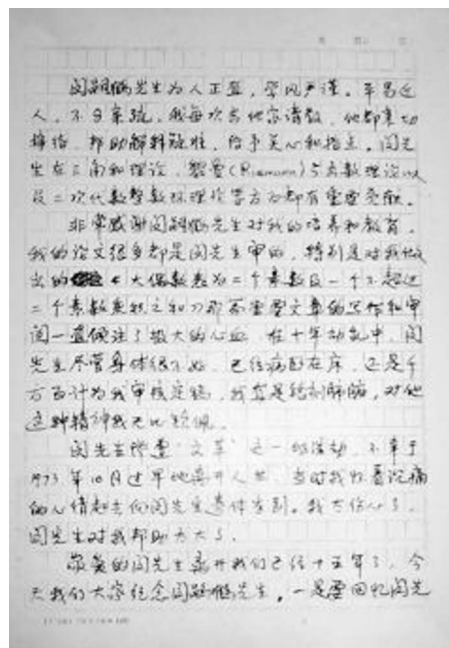 闵嗣鹤先生为人正直,学风严谨。平易近
人,不分亲疏,我每次去他家请教,他都亲切
接待,帮助解释疑难,给予关心和指点。闵先
生在三角和理论,黎曼(Riemann)ξ函数理论以
及二次代数整数环理论等方面都有重要贡献。
非常感谢闵嗣鹤先生对我的培养和教育,
我的论文很多都是闵先生审的,特别是对我做
出的《大偶数表为一个素数及一个不超过
二个素数乘积之和》那篇重要文章的写作和审
阅一直倾注了极大的心血,在十年动乱中,闵
先生尽管身体很不好,已经病困在床,还是千
方百计为我审核定稿,我真是铭刻肺腑,对他
这种精神我无比钦佩。
闵先生惨遭“文革”之一的活动,不幸于
1973年10月过早地离开人世,当时我怀着沉痛
的心情赶去向闵先生遗体告别。我太伤心了,
闵先生对我帮助太大了。
敬爱的闵先生离开我们已经十五年了,今
天我们大家纪念闵嗣鹤先生,一是要回忆闵先